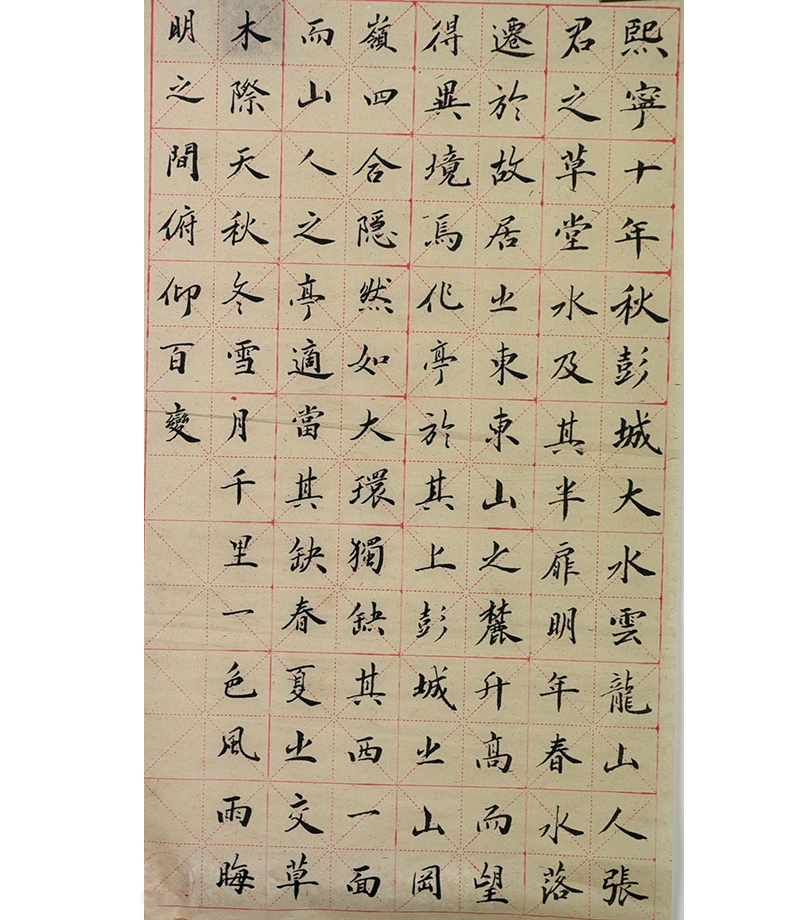 熙寧十年秋彭城大水雲龍山人張
君之草堂水及其半扉明年春水落
遷於故居之東東山之麓升高而望
得異境焉作亭於其上彭城之山岡
嶺四合隱然如大環獨缺其西一面
而山人之亭適當其缺春夏之交草
木際天秋冬雪月千里一色風雨晦
明之間俯仰百變